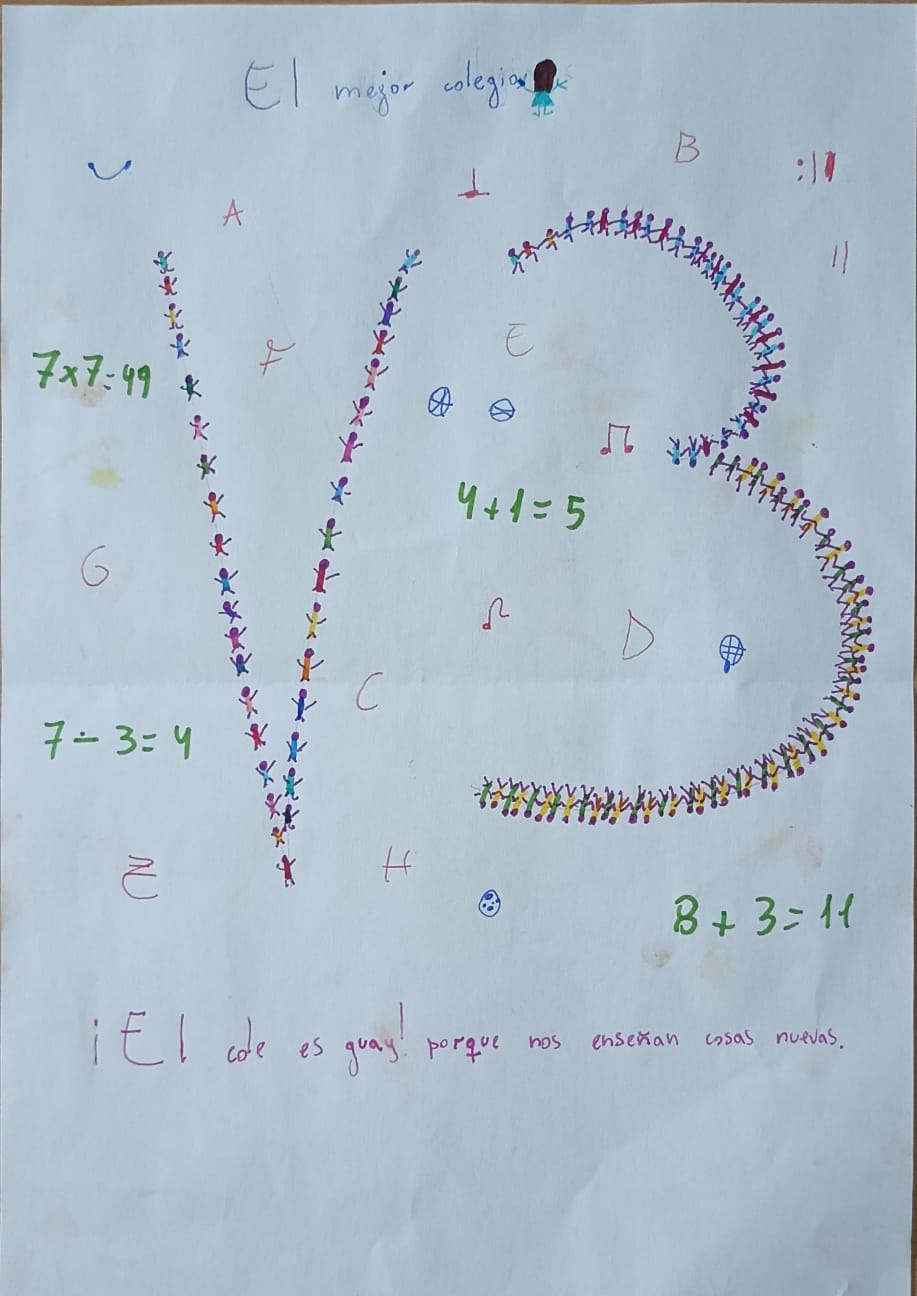 El mejor colegio
B
A
E
F
7x7=49
4+1=5
G
D
C
7-3=4
Z
H
8+3=11
¡El cole es guay! porque nos enseñan cosas nuevas.